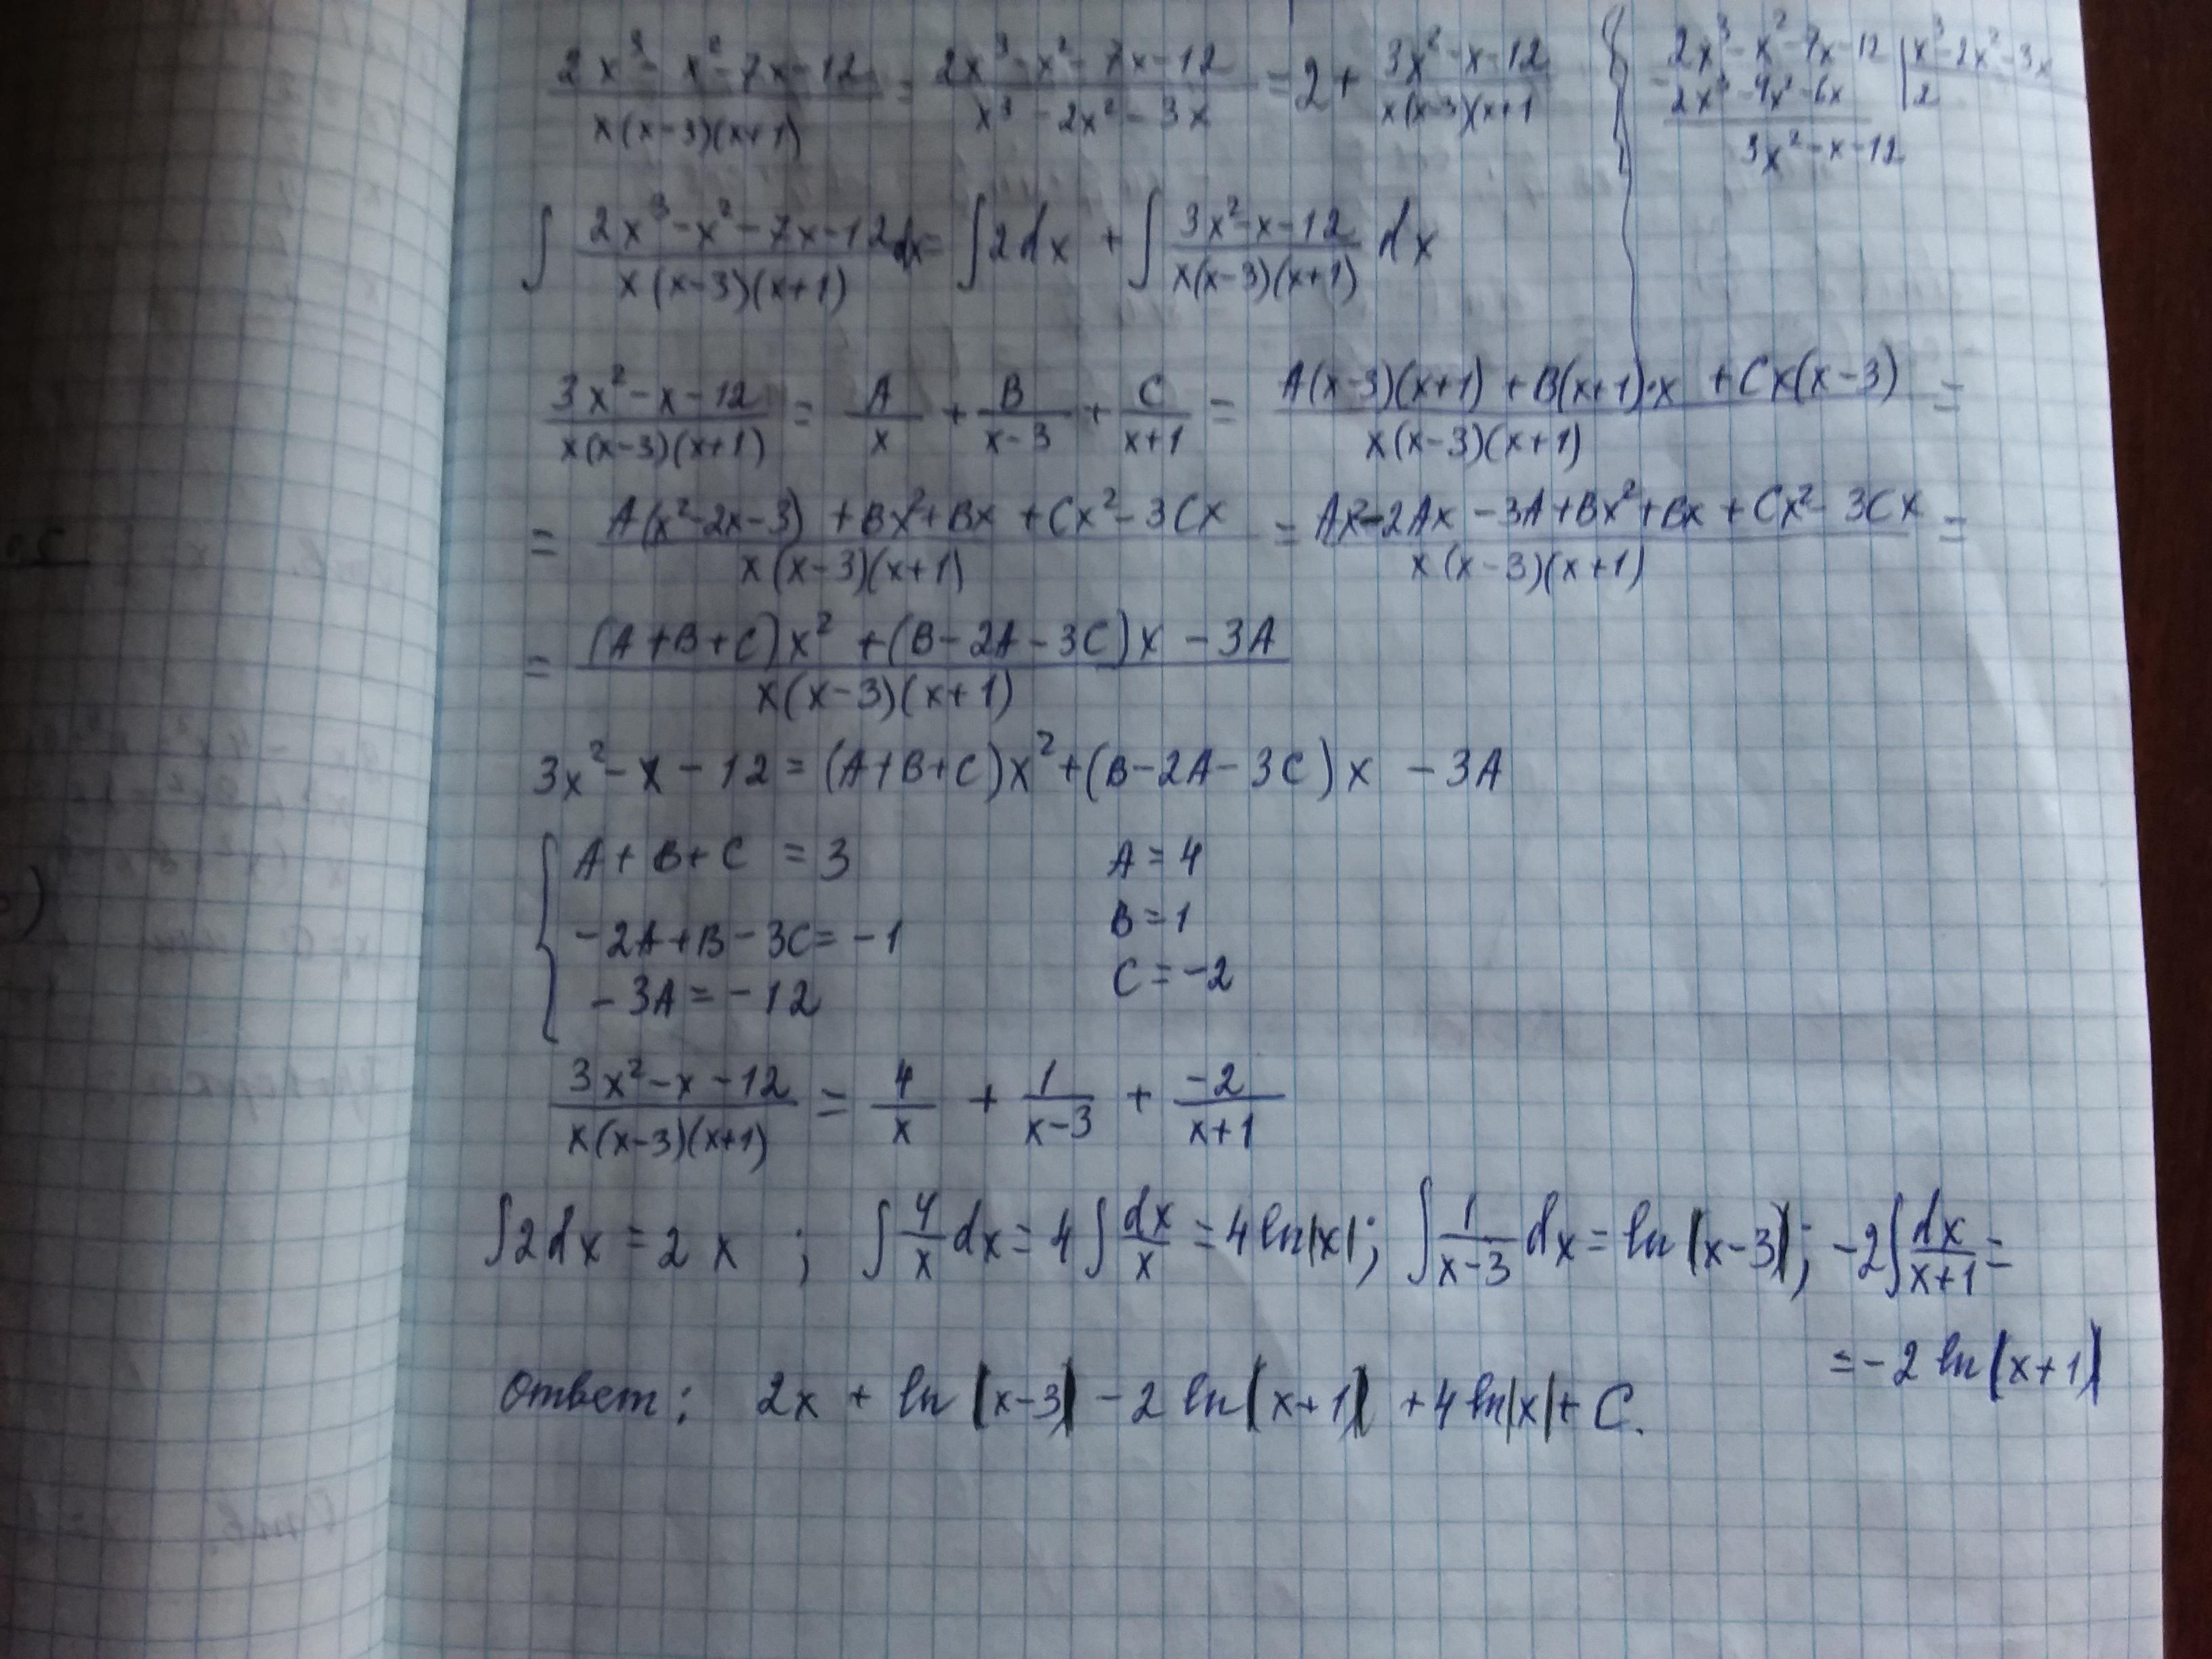 (2x³ - x² - 7x - 12)/(x(x-3)(x+1)) = (2x³ - x² - 7x - 12)/(x³ - 2x² - 3x) = 2 + (3x² - x - 12)/(x(x-3)(x+1))
2x³ - x² - 7x - 12 | x³ - 2x² - 3x
- 2x³ - 4x² - 6x | 2
3x² - x - 12
∫ (2x³ - x² - 7x - 12)/(x(x-3)(x+1)) dx = ∫ 2dx + ∫ (3x² - x - 12)/(x(x-3)(x+1)) dx
(3x² - x - 12)/(x(x-3)(x+1)) = A/x + B/(x-3) + C/(x+1) = (A(x-3)(x+1) + B(x+1)·x + Cx(x-3))/(x(x-3)(x+1)) =
= (A(x²-2x-3) + Bx² + Bx + Cx² - 3Cx)/(x(x-3)(x+1)) = (Ax² - 2Ax - 3A + Bx² + Bx + Cx² - 3Cx)/(x(x-3)(x+1)) =
= ((A+B+C)x² + (B-2A-3C)x - 3A)/(x(x-3)(x+1))
3x² - x - 12 = (A+B+C)x² + (B-2A-3C)x - 3A
{ A + B + C = 3
-2A + B - 3C = -1
-3A = -12
A = 4
B = 1
C = -2
(3x² - x - 12)/(x(x-3)(x+1)) = 4/x + 1/(x-3) + -2/(x+1)
∫2dx = 2x ; ∫ 4/x dx = 4∫ dx/x = 4 ln|x|; ∫ 1/(x-3) dx = ln|x-3|; -2∫ dx/(x+1) =
= -2 ln|x+1|
Ответ: 2x + ln|x-3| - 2 ln|x+1| + 4 ln|x| + C.